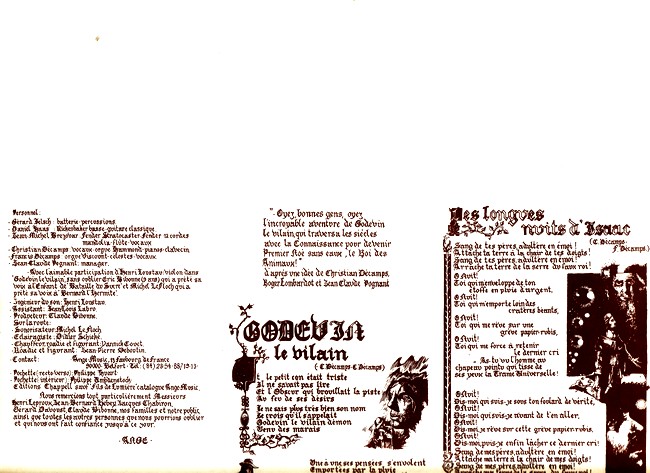 Personnel:
- Gérard Jelsch : batterie-percussions.
- Daniel Haas : Rickenbacker basse-guitare classique.
- Jean Michel Brézovar : Fender Stratocaster-Fender 12 cordes
mandoline-flûte-vocaux
- Christian Décamps : vocaux-orgue Hammond-pianos-clavecin
- Francis Décamps : orgue Viscount-célestes-vocaux.
- Jean Claude Pognant : manager.
Avec l'aimable participation d'Henri Loustau violon dans
"Godevin le vilain, sans oublier Eric Bibonne (5 ans) qui a prêté sa
voix à l'Enfant de "Bataille du Sucre" et Michel Le Floch qui a
prêté sa voix à "Bernard l'hermite".
- Ingénieur du son : Henri Loustau.
- Assistant : Jean Louis Labro.
- Producteur : Claude Bibonne.
- Sur la route :
- Sonorisateur : Michel Le Floch
- Eclairagiste : Didier
- Chauffeur, roadie et figurant : Yannick
- Roadie et figurant : Jean Pierre
- Contact : Ange Music, faubourg de france
90000 Belfort - Tel :
- Pochette (recto verso) : Philippe Huart
- Pochette (intérieur) : Philippe Umbdenstock
- Editions Chappell sauf "Fils de Lumière" catalogue Ange Music.
Nous remercions tout particulièrement Messieurs
Henri Leproux, Jean Bernard Hebey, Jacques Chabiron,
Gérard Davoust, Claude Bibonne, nos familles et notre public
ainsi que toutes les autres personnes que nous pourrions oublier
et qui nous ont fait confiance jusqu'à ce jour.
- ANGE -
"- Oyez, bonnes gens, oyez
l'incroyable aventure de Godevin
le vilain, qui traversa les siècles
avec la Connaissance pour devenir
Premier Noé sans eaux, le Roi des
Animaux!"
d'après une idée de Christian Décamps,
Roger Lombardot et Jean Claude Pognant
GODEVIN
le vilain
(C. Décamps-F. Décamps)
Et le petit con était triste
Il ne savait pas lire
Et l'Obscur qui brouillait la piste
Au feu de ses désirs
Je ne sais plus très bien son nom
Je crois qu'il s'appelait
Godevin le vilain démon
Venu des marais
Une à une ses pensées s'envolent
Emportées par la pluie
Les longues
nuits d'Isaac
(C. Décamps-
F. Décamps)
Sang de tes pères, adultère en émoi!
Attache ta terre à la chair de tes doigts!
Sang de tes pères, adultère en émoi!
Arrache ta terre de la serre du faux roi!
O Nuit!
Toi qui m'enveloppe de ton
étoffe en pluie d'argent,
O Nuit!
Toi qui m'emporte loin des
cratères béants,
O Nuit!
Toi qui me rêve sur une
grève papier-rubis,
O Nuit!
Toi qui me force à retenir
le dernier cri
- As-tu vu l'homme au
chapeau pointu qui tisse de
ses yeux la Trame Universelle!
O Nuit!
Dis-moi qui suis-je sous ton foulard de vérité,
O Nuit!
Dis-moi qui suis-je avant de t'en aller,
O Nuit!
Dis-moi, je rêve sur cette grève papier-rubis,
O Nuit!
Dis-moi, puis-je enfin lâcher ce dernier cri!
Sang de tes pères, adultère en émoi!
Attache ma terre à la chair de mes doigts!
Sang de mes pères, adultère en émoi!